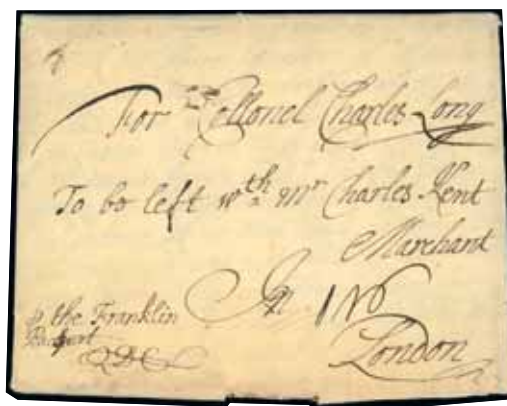 For Collonel Charles Long
To be left wth Mr Charles Kent
Marchant
In
London
the Franklin
QDC